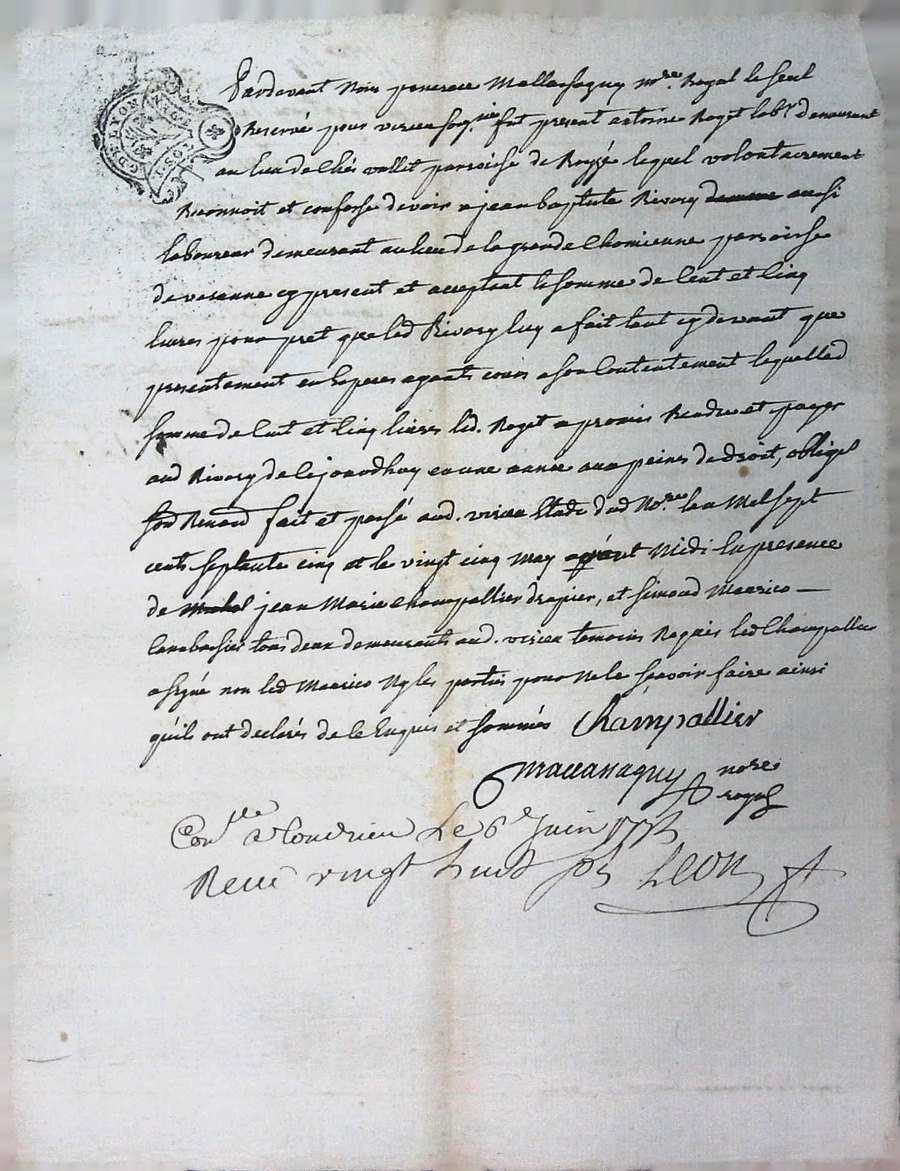 G. DE LYON
Pardevant Nous poncrace Mallassagny nore. Royal le seul
Reservé pour virieu soqne. fut present antoine Roget labr. demeurant
au lieu de Chés vallet parroisse de lequel volontairement
Reconnoit et confesse devoir a jean baptiste Rivory aussi
laboureur demeurant au lieu de la grande Chomienne parroisse
de veranne cy present et acceptant la somme de Cent et Cinq
livres pour pret que led Rivory luy a fait tant cy devant que
presentement en Especes ayants cours a son Contentement laquelled
somme de Cent et Cinq livres led. Roget a promis Rendre et payer
aud Rivory de Cejourdhuy en une année aux peines de droit, oblige
fait et passé aud. virieu Etude dud Nore. lan Mil sept
cents septante cinq et le vingt cinq may avant Midi En presence
de jean Marie Champallier drapier, et Simond Maurice
Cabaretier tous deux demeurants aud. virieu temoins Requis led Champallier
a signé non led Maurice Ny les parties pour Ne le sçavoir faire ainsi
qu'ils ont declarés de ce Enquis et sommés Champallier
Mallassagny nore
royal
Conlle a Condrieu Le 6e Juin 1775
Reçu vingt huit LEON